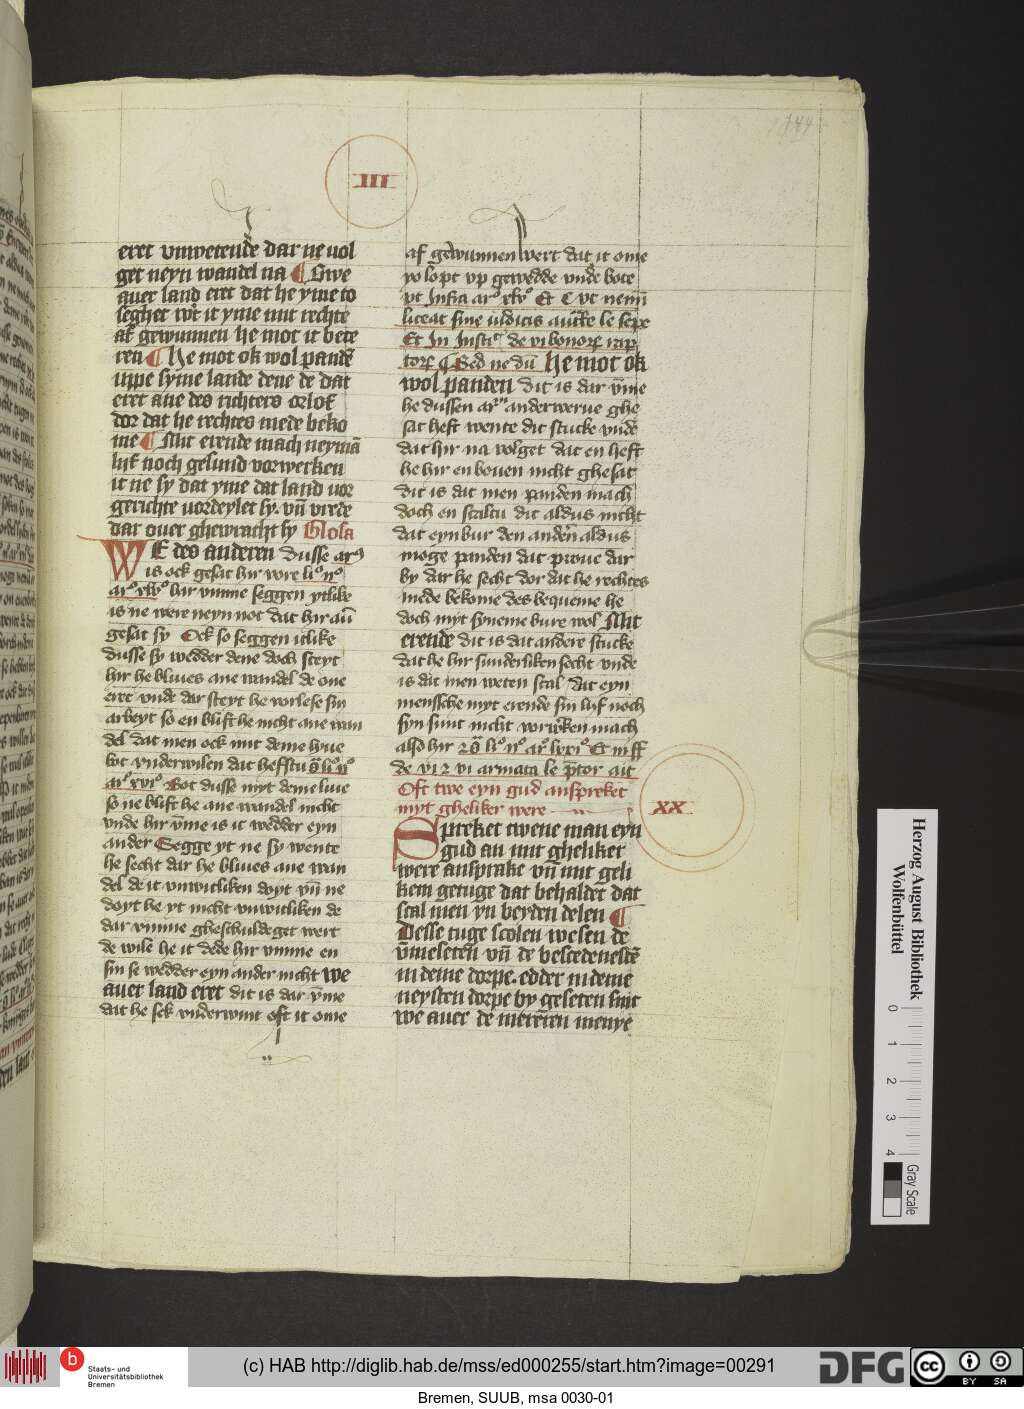 III
eret vnwetende dar ne uol
get neyn wandel na ¶ Swe
auer land eret dat he yme to
seghet wert it yme mit rechte
af gewunnen he mot it bete
ren ¶ He mot ok wol pandē
uppe syme lande dene de dat
eret ane des richters orlof
dor dat he rechtes mede beko
me ¶ Mit erende mach neymā
lif noch gesund vorwerken
it ne sy dat yme dat land uor
gerichte uordeylet sy. vn̄ vrede
dar ouer ghewracht sy Glosa
WE des anderen dusse arꝰ
is ock gesat hir wre liᵒ nᵒ
arᵒ xlvᵒ hir vmme seggen ytlike
is ne were neyn not dat hir an̄
gesat sy Ock so seggen itlike
dusse sy wedder dene doch steyt
hir he bliues ane wandel de one
eret vnde dar steyt he vorlese sin
arbeyt so en blift he nicht ane wan
del dat men ock mit deme hyue
bot vnderwilen dat hefstu ō liᵒ nᵒ
arᵒ xviᵒ Bot dusse myt deme luie
so ne blift he ane wandel nicht
vnde hir v̄me is it wedder eyn
ander Segge yt ne sy wente
he secht dar he bliues ane wan
del de it vnwitliken doyt vn̄ ne
doyt he yt nicht vnwitliken de
dar vmme gheschuldeget wert
de wile he it dede hir vmme en
sin se wedder eyn ander nicht we
auer land eret dit is dar v̄me
dat he sek vnderwint oft it ome
af gewunnen wert dat it ome
to lopt vp gewedde vnde bote
vt Infra arᵒ xlvᵒ Et C vt nemi
liceat sine iudicis auctōe le sepe
Et In Insti de vi bonorꝝ rap
torꝝ ¶ Sed ne dū He mot ok
wol panden dit is dar v̄me
he dussen arᵐ anderwerue ghe
sat heft wente dit stucke vnde
dat hir na volget dat en heft
he hir en bouen nicht ghesat
dit is dat men panden mach
doch en scaltu dit aldus nicht
dat eyn bur den andern aldus
moge panden dat proue dar
by dar he secht dor dat he rechtes
mede bekome des bequeme he
doch myt syneme bure wol Mit
erende dit is dat andere stucke
dat he hir sunderliken secht vnde
is dat men weten scal dat eyn
menssche myt erende sin lif noch
syn sunt nicht vorwirken mach
also hir ꝛ ō liᵒ nᵒ arᵒ lxviᵒ Et in ff
de vi ꝛ vi armata le p̄tor ait
Oft twe eyn gud anspreket
myt gheliker were
XX
Spreket twene man eyn
gud an mit gheliker
were ansprake vn̄ mit geli
kem getuge dat behaldet dat
scal men yn beyden delen ¶
Desse tuge scolen wesen de
v̄meseten vn̄ de besetenesten
in deme dorpe. edder in deme
neysten dorpe by geseten swit
we auer de mereren menye
Herzog August Bibliothek
Wolfenbüttel
0
1
2
3
4
Gray Scale
b
Staats- und
Universitätsbibliothek
Bremen
(c) HAB http://diglib.hab.de/mss/ed000255/start.htm?image=00291
DFG
cc
BY SA
Bremen, SUUB, msa 0030-01